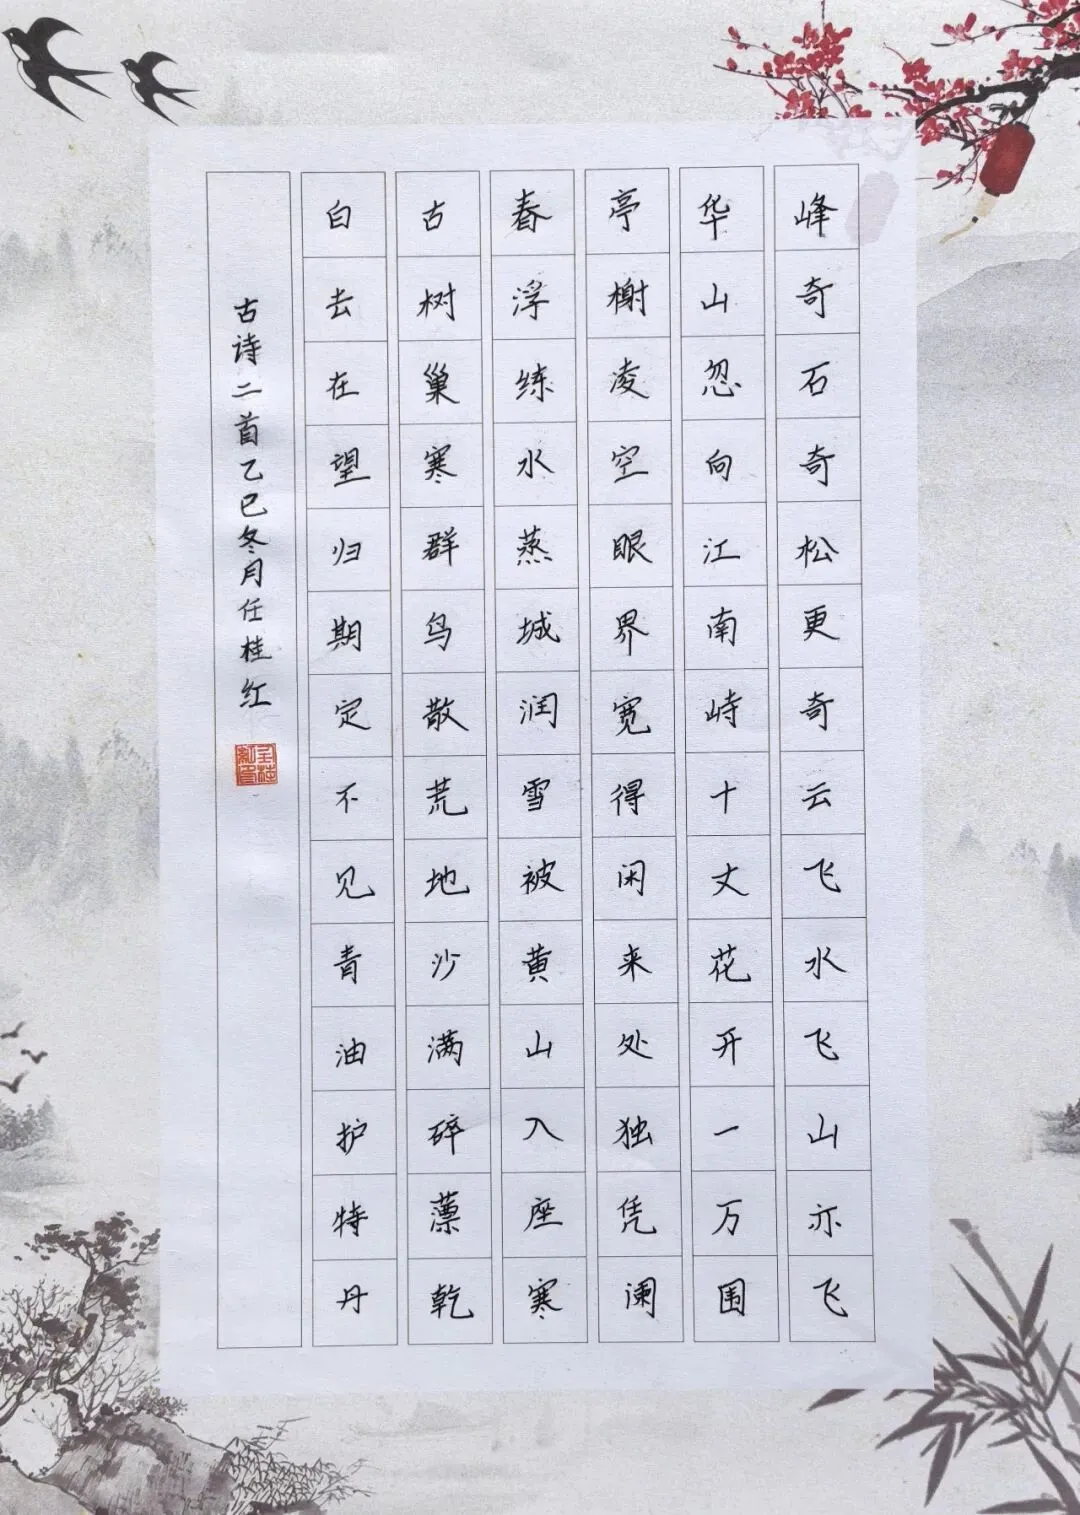 峰奇石奇松更奇云飞水飞山亦飞
华山忽向江南峙十丈花开一万围
亭榭凌空眼界宽得闲来处独凭阑
春浮练水蒸城润雪被黄山入座寒
古树巢寒群鸟散荒地沙满碎薸乾
白去在望归期定不见青油护特丹
古诗二首乙巳冬月任桂红